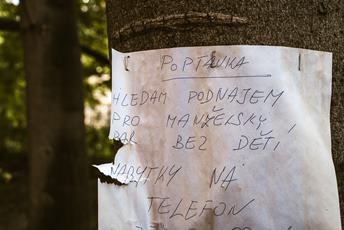 POPTÁVKA
HLEDAM PODNAJEM
PRO MANŽELSKÝ
PAR BEZ DĚTÍ
NABYTKY NA
TELEFON